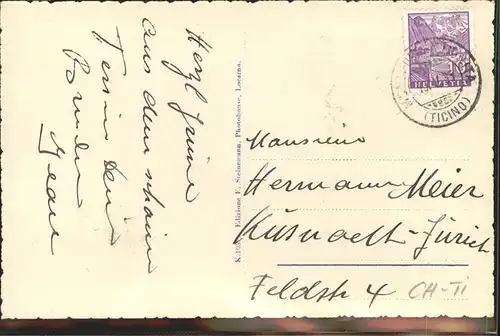 Herzl Grüsse
aus dem schönen
Tessin Dein
Bruder
Jean
Edizione E. Steinemann, Photohouse, Locarno.
HELVETIA
(TICINO)
Monsieur
Hermann Meier
Küsnacht-Zürich
Feldstr 4
CH-TI